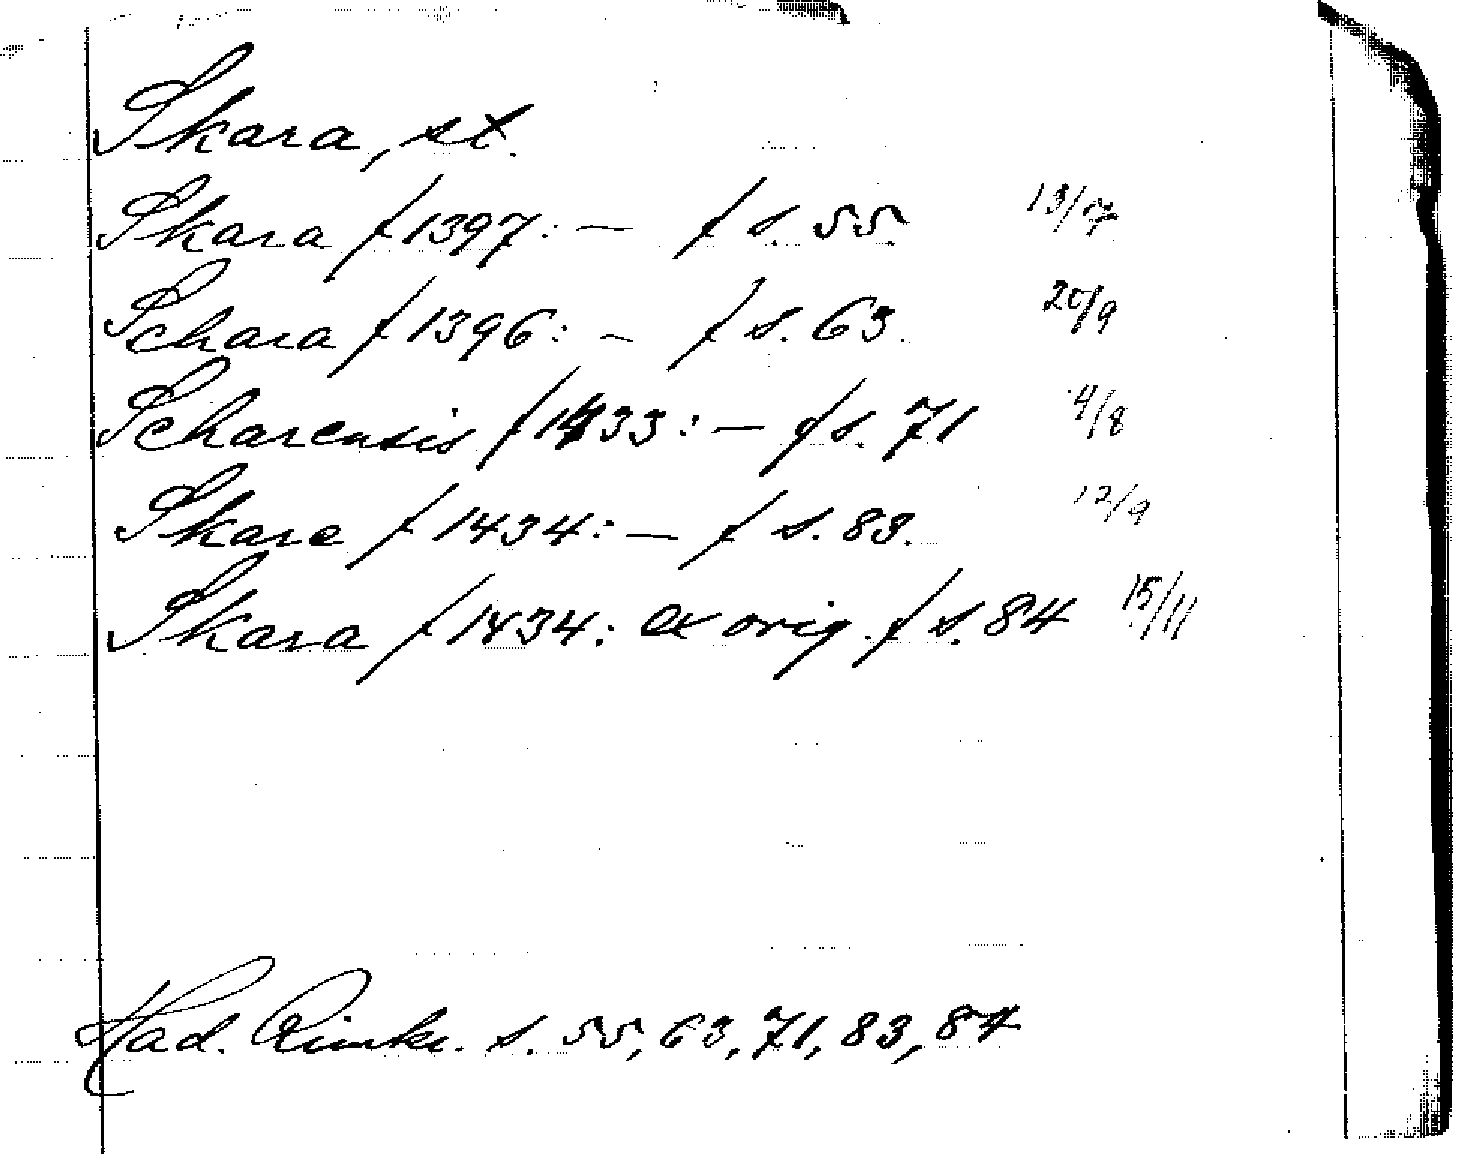 Skara, st.
Skara / 1397: — / s. 55. 13/7
Schara / 1396: — / s. 63. 20/9
Scharensis / 1433: — / s. 71 4/8
Skare / 1434: — / s. 83. 12/9
Skara / 1434: ex orig. / s. 84 15/11
Had. Rimkr. s. 55, 63, 71, 83, 84